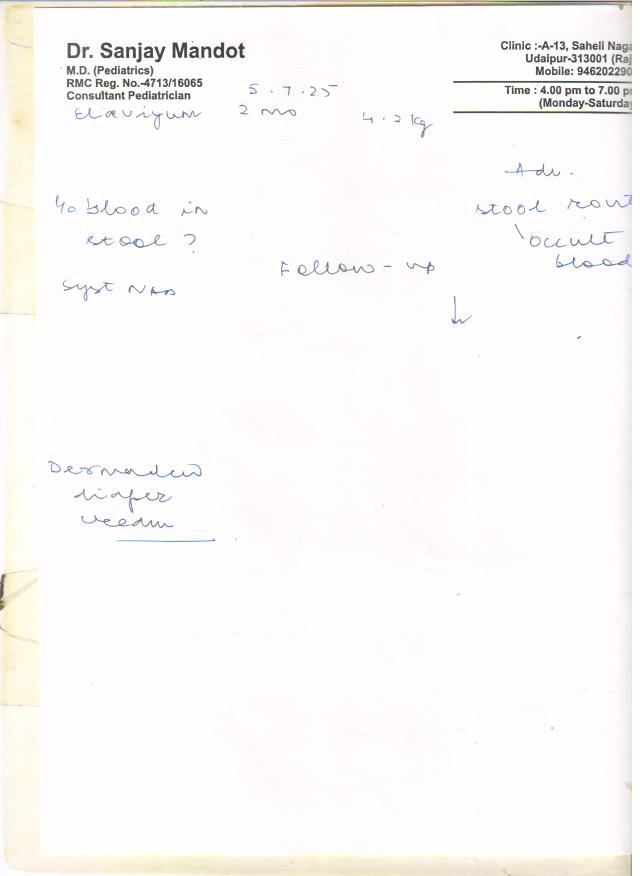 Dr. Sanjay Mandot
M.D. (Pediatrics)
RMC Reg. No.-4713/16065
Consultant Pediatrician
Clinic :-A-13, Saheli Naga
Udaipur-313001 (Raj
Mobile: 946202290
Time : 4.00 pm to 7.00 p
(Monday-Saturda
5.7.25
2 mo 4.2 kg
Adv.
blood in
stool ?
stool rout
occult
blood
Follow-up
Syst NAD
diaper